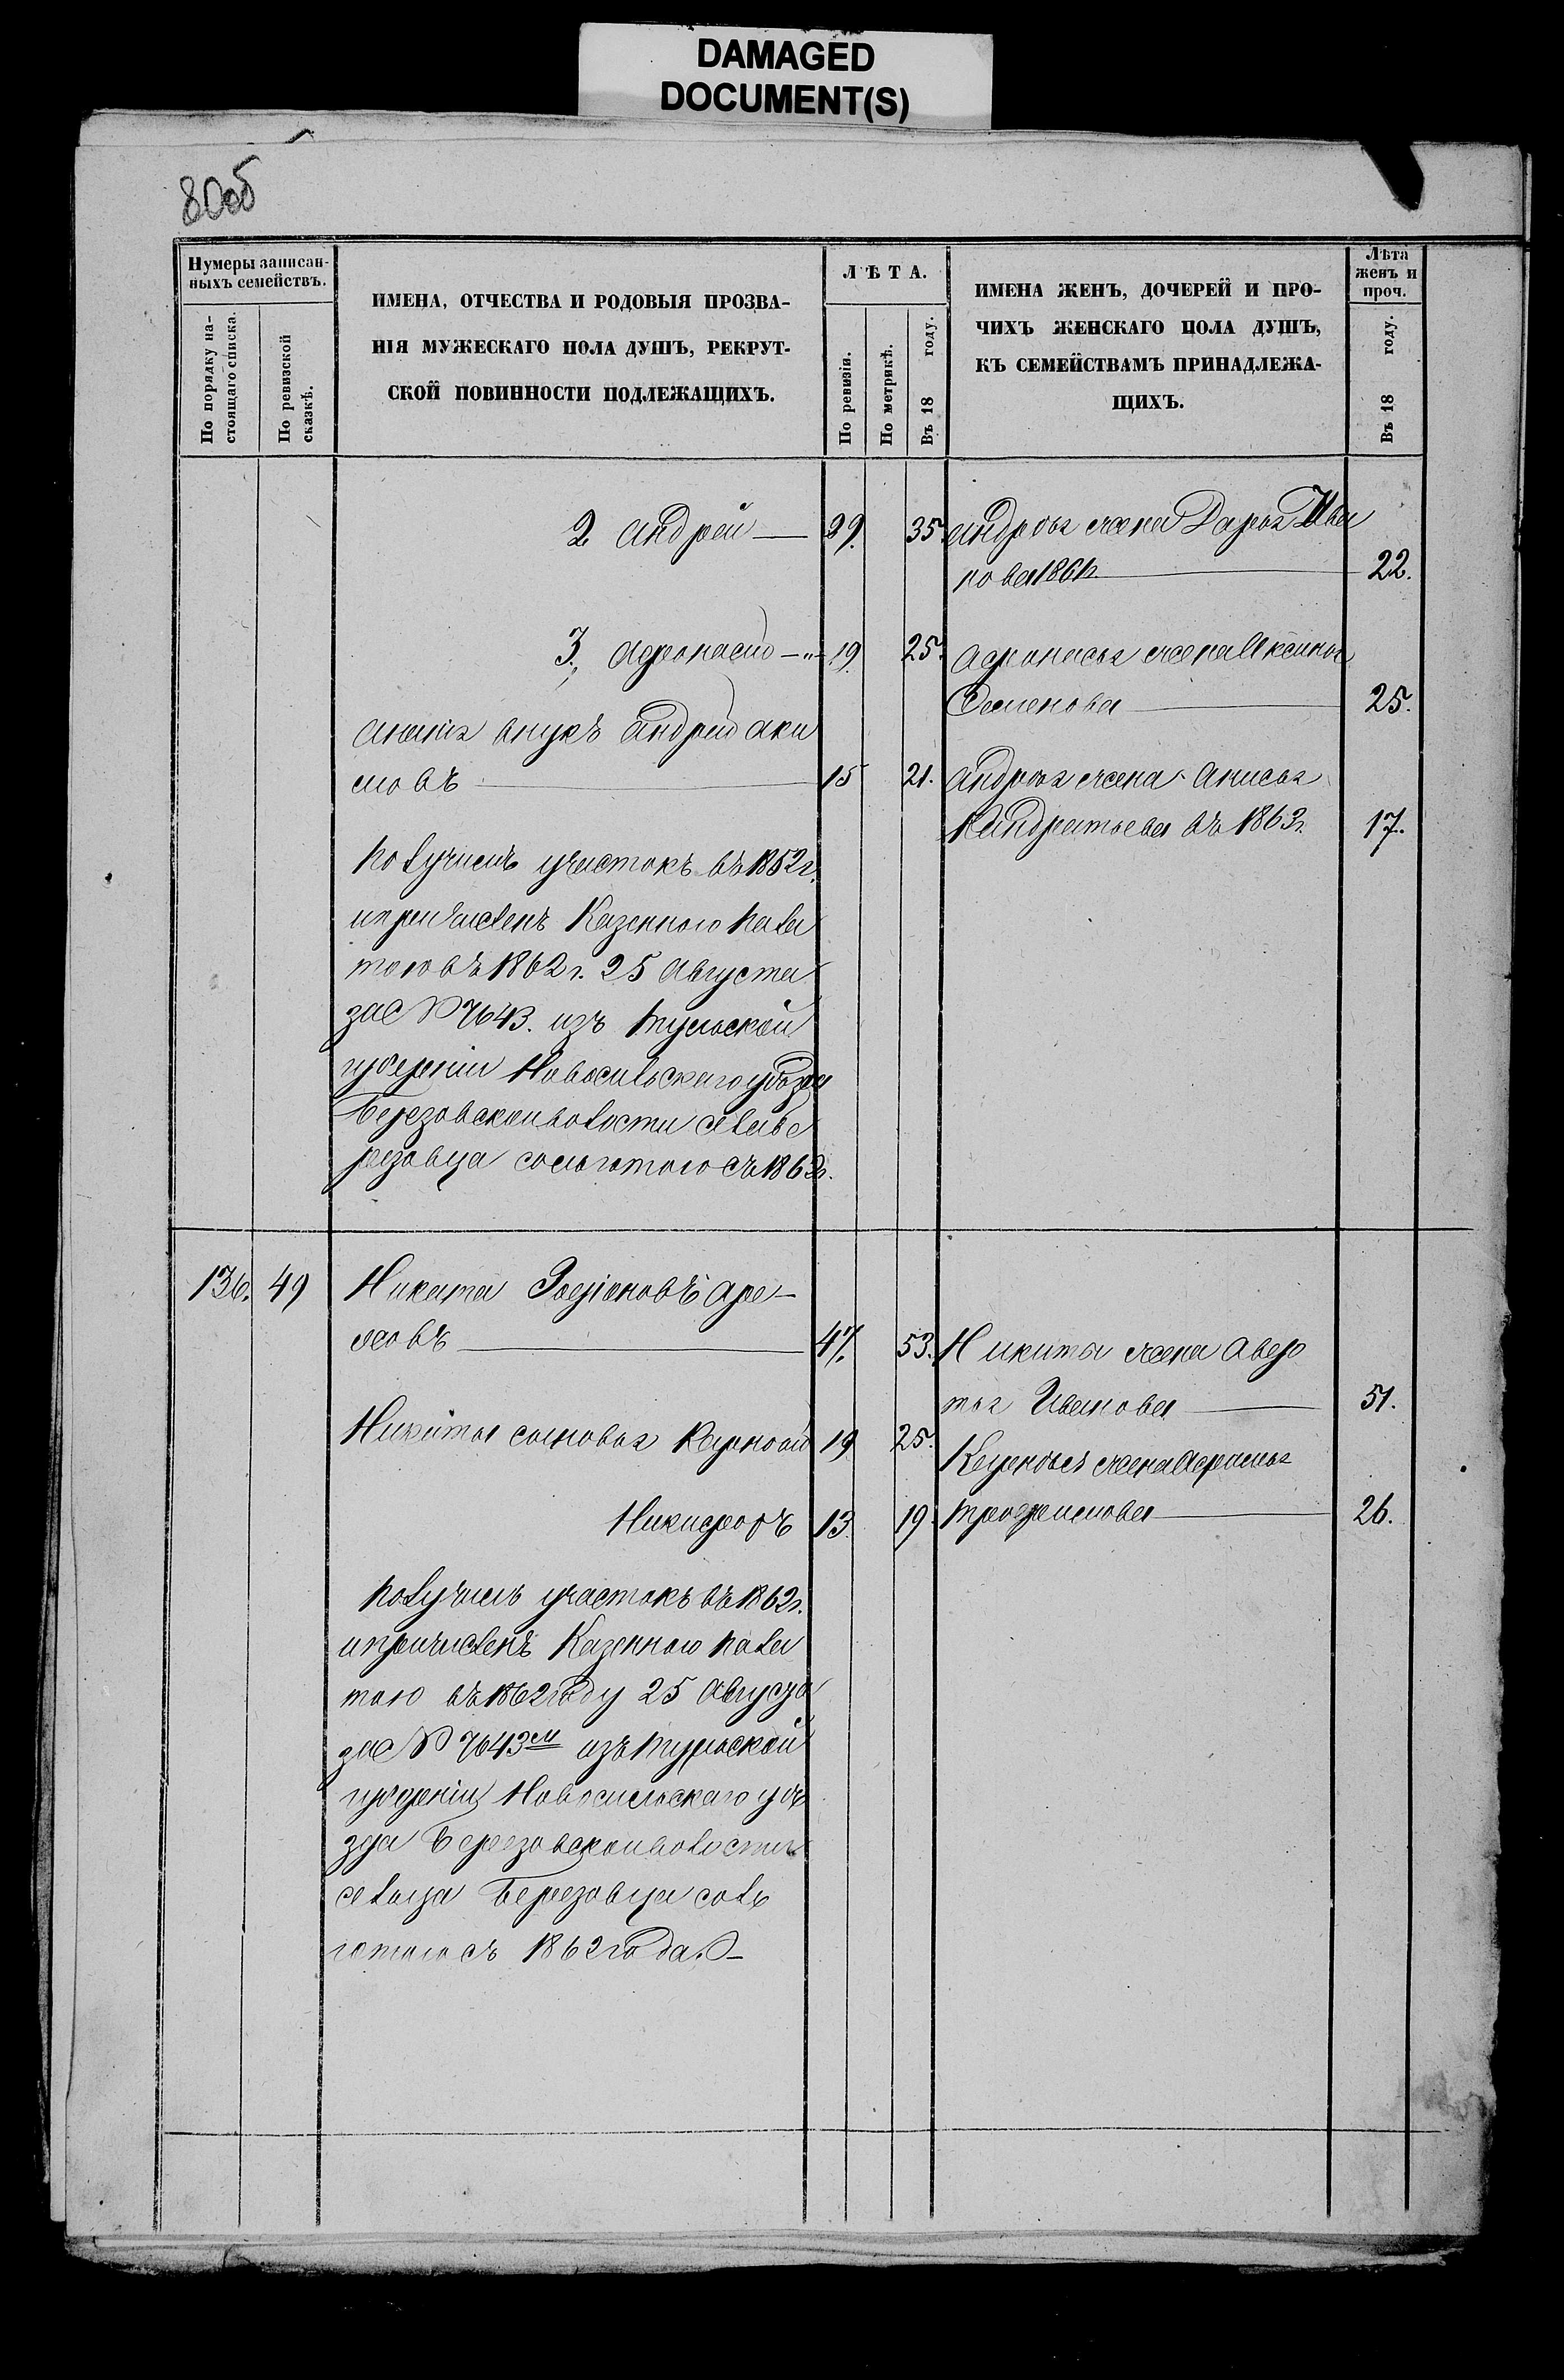 DAMAGED
DOCUMENT(S)
80об
Нумеры записан-
ныхъ семействъ.
По порядку на-
стоящаго списка.
По ревизской
сказкѣ.
ИМЕНА, ОТЧЕСТВА И РОДОВЫЯ ПРОЗВА-
НІЯ МУЖЕСКАГО ПОЛА ДУШЪ, РЕКРУТ-
СКОЙ ПОВИННОСТИ ПОДЛЕЖАЩИХЪ.
ЛѢТА.
По ревизіи.
По метрикѣ.
Въ 18 году.
ИМЕНА ЖЕНЪ, ДОЧЕРЕЙ И ПРО-
ЧИХЪ ЖЕНСКАГО ПОЛА ДУШЪ,
КЪ СЕМЕЙСТВАМЪ ПРИНАДЛЕЖА-
ЩИХЪ.
Лѣта
женъ и
проч.
Въ 18 году.
2 Андрей — 29. 35. Андрѣя жена Дарья Ива
нова 22.
3., Афонасій —"— 19. 25. Афонасья жена Аксинья
Семенова — 25.
внукъ Андрей Аки
мовъ — 15 21. Андрѣя жена Анисья
Кандратьева въ 1863г. 17.
Получилъ участокъ въ 1862г.
и причисленъ Казенною пала
тою въ 1862г. 25 Августа
за № 7643. изъ Тульской
губерніи Новосильскаго уѣзда
Березовской волости села Бе
резовца со льготою съ 1862г.
136. 49 Никита Аре-
47. 53. Никиты жена Авдо
тья Иванова — 51.
Никиты сыновья Карнѣй 19 25. Карнѣя жена
Трофимова — 26.
Никифоръ 13 19.
Получилъ участокъ въ 1862г.
и причисленъ Казенною пала
тою въ 1862 году 25 Августа
за № 7643м изъ Тульской
губерніи Новосильскаго уѣ
зда Березовской волости
сельца Березовца со ль
готою съ 1862 года.